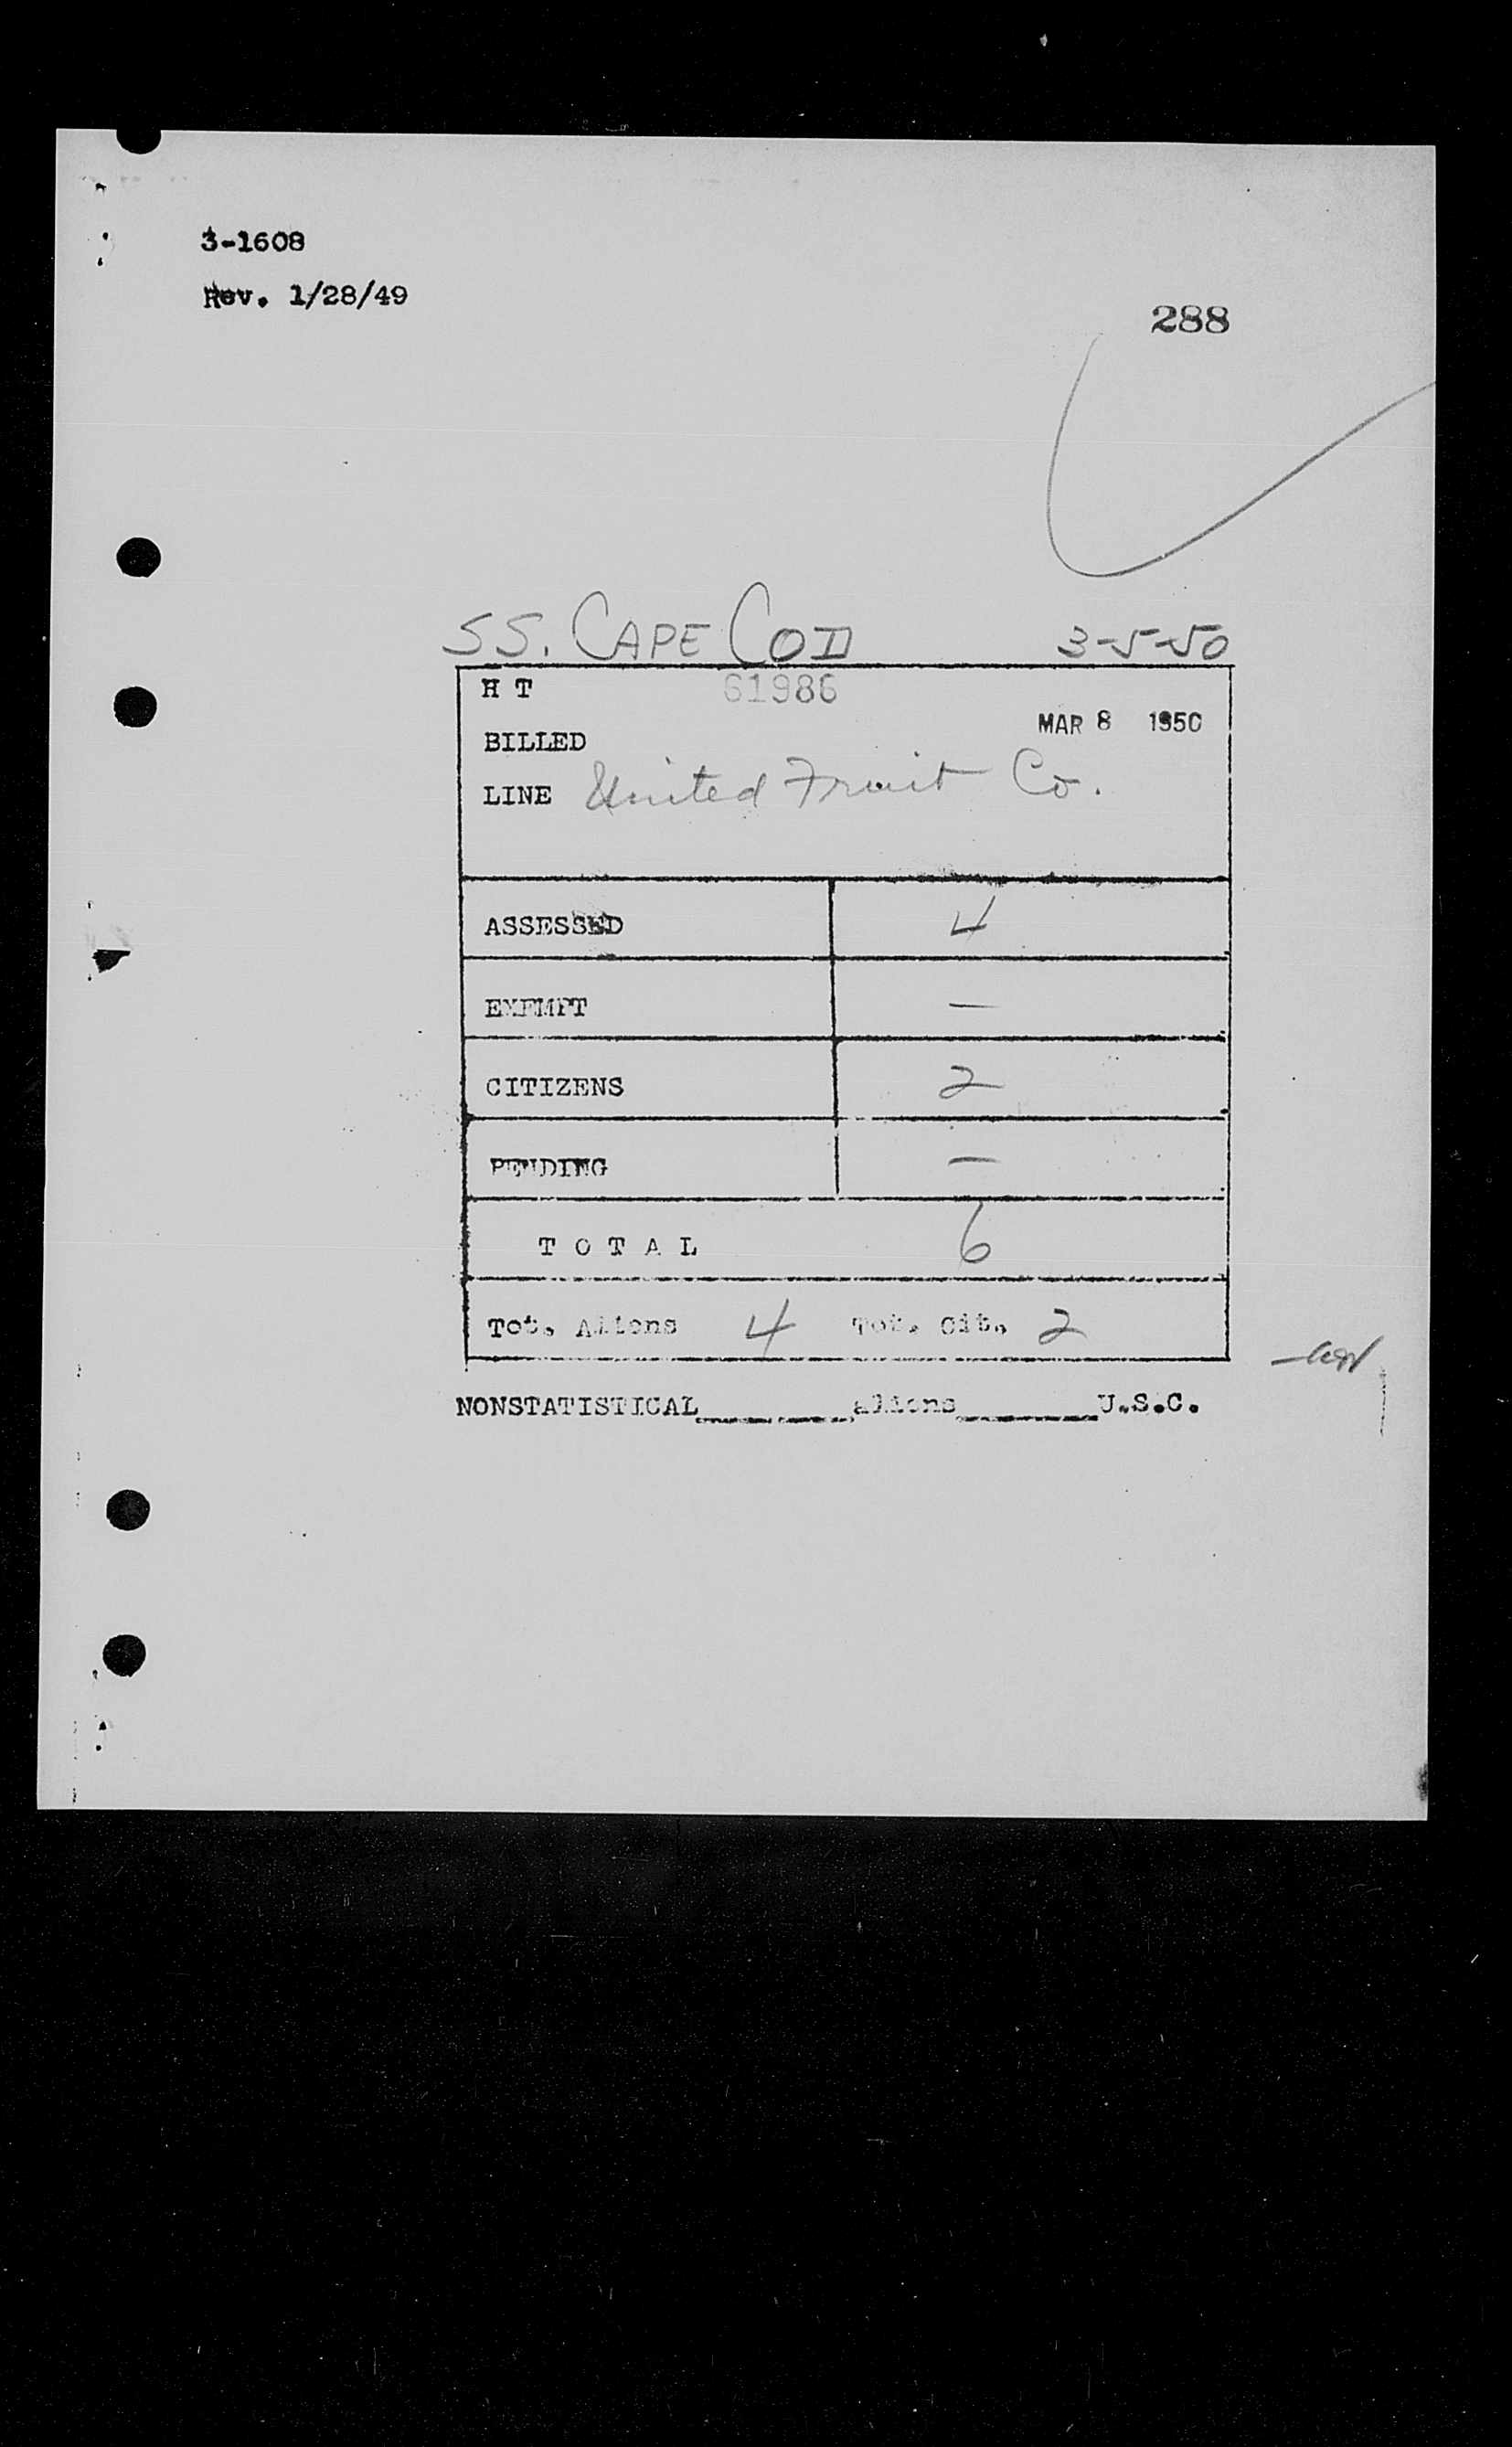 3-1608
Rev. 1/28/49
288
SS. CAPE COD 3-5-50
H T 61986
MAR 8 1950
BILLED
LINE United Fruit Co.
ASSESSED 4
EXEMPT —
CITIZENS 2
PENDING —
T O T A L 6
Tot. Aliens 4 Tot. Cit. 2
NONSTATISTICAL________aliens________U.S.C.